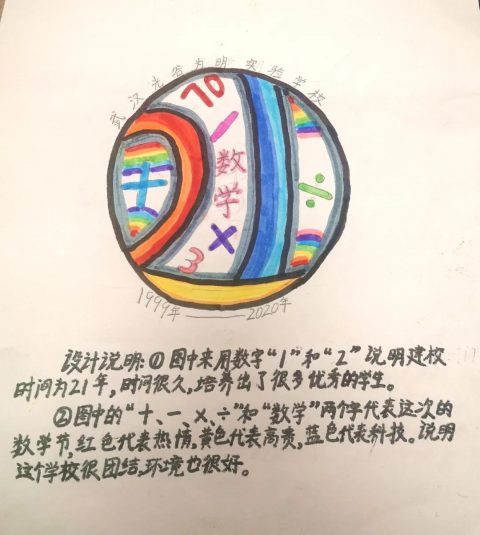 武汉光谷为明实验学校
70
数
学
3
1999年——2020年
设计说明:①图中采用数字“1”和“2”说明建校
时间为21年,时间很久,培养出了很多优秀的学生。
②图中的“十、一、×、÷”和“数学”两个字代表这次的
数学节,红色代表热情,黄色代表高贵,蓝色代表科技。说明
这个学校很团结,环境也很好。